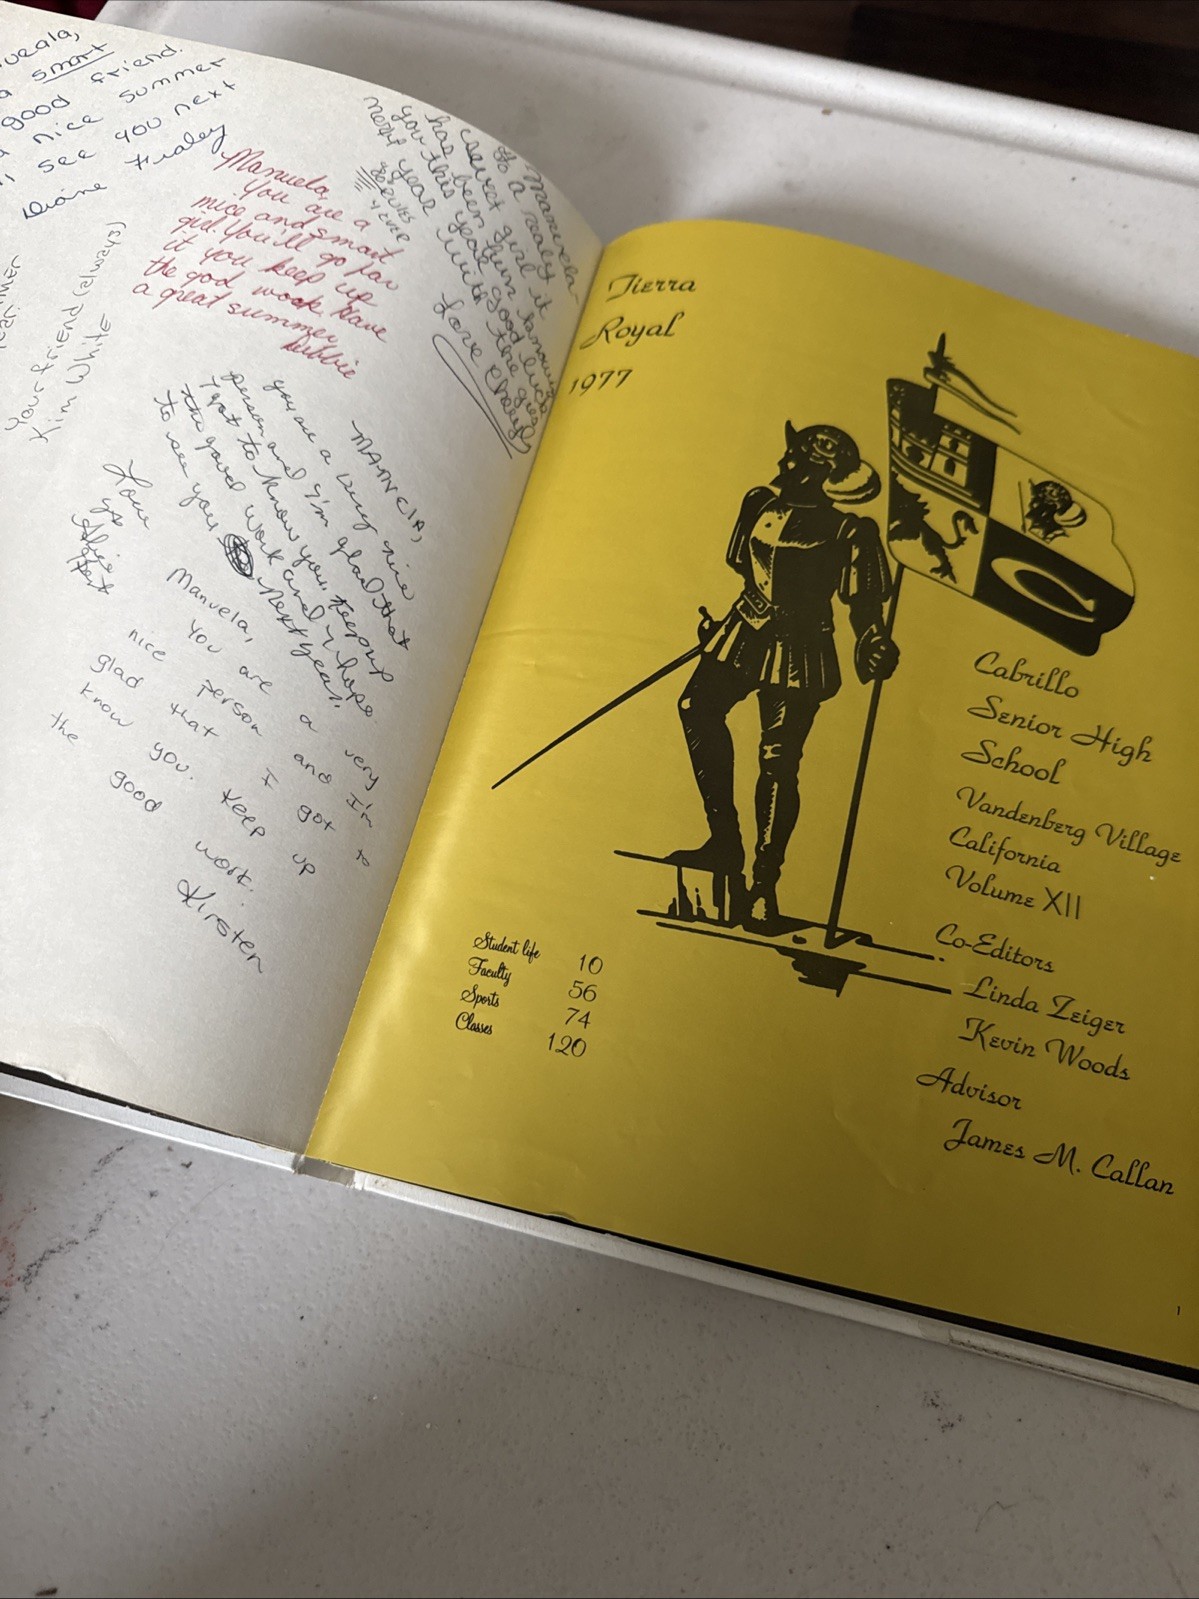 smart
good friend.
nice summer
see you next
Diane
Manuela,
You are a
nice and smart
girl. You'll go far
if you keep up
the god work. Have
a great summer
Debbie
Manuela-
to a really
sweet girl it
has been fun knowing
you this year good luck
next year with the
Love Cheryl
your friend (always)
Kim White
you are a very nice
person and I'm glad that
I got to know you. Keep up
the good work and I hope
to see you next year.
Love
ya
Manuela,
You are a very
nice person and I'm
glad that I got to
know you. Keep up
the good work.
Kirsten
Tierra
Royal
1977
C
Cabrillo
Senior High
School
Vandenberg Village
California
Volume XII
Co-Editors
Linda Zeiger
Kevin Woods
Advisor
James M. Callan
Student life 10
Faculty 56
Sports 74
Classes 120
1